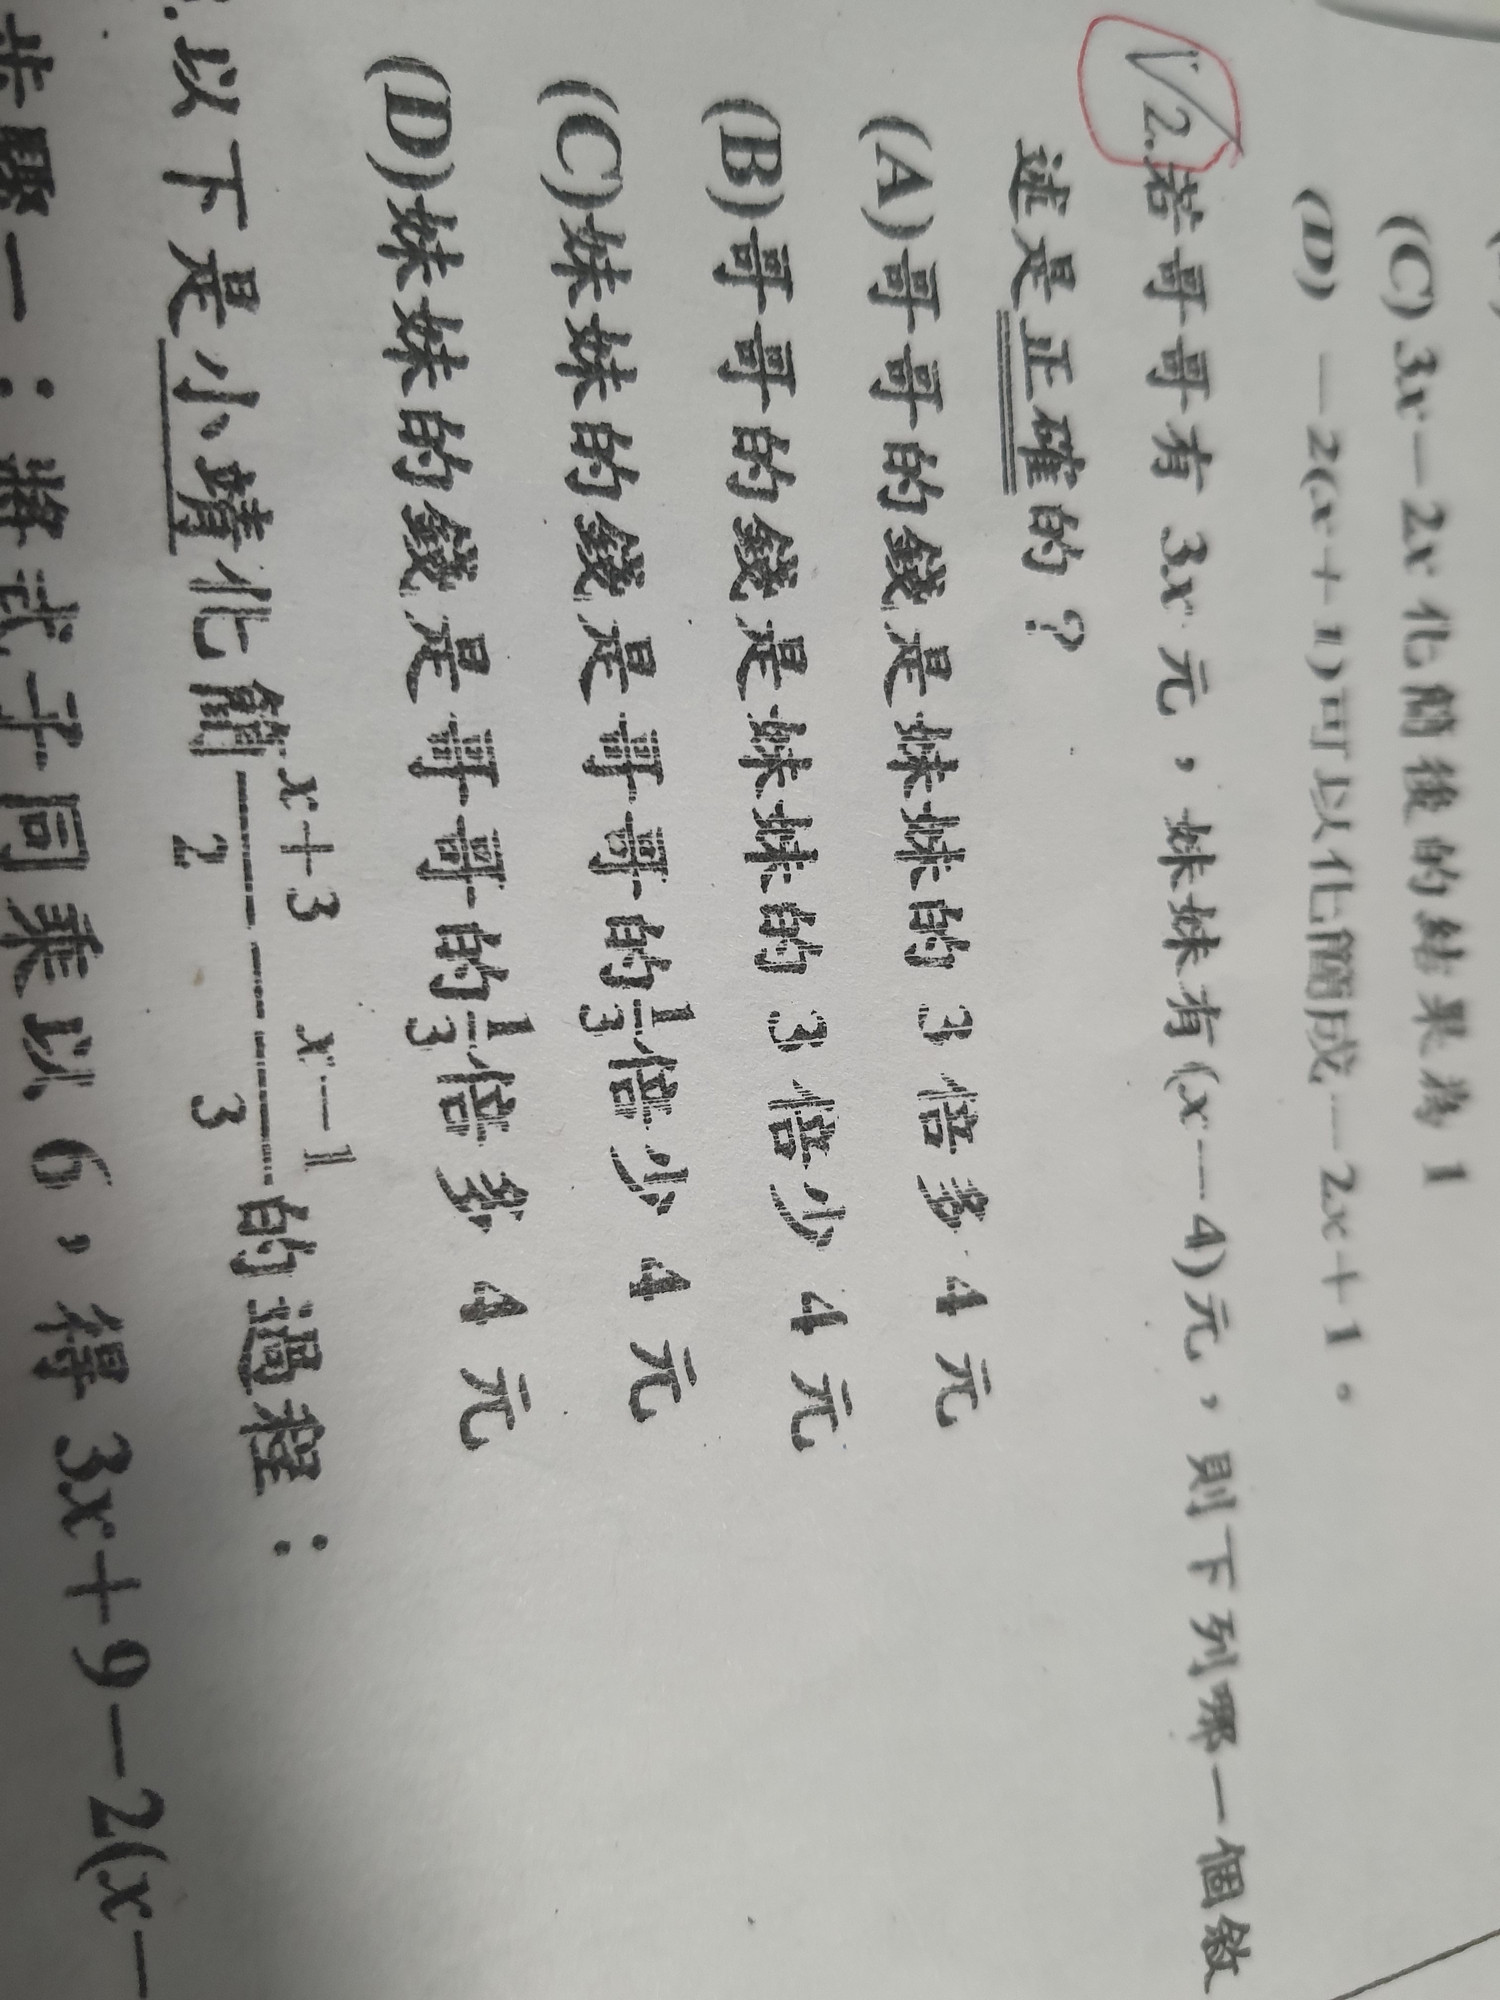 (C) 3x－2x 化簡後的結果為 1
(D) －2(x＋1)可以化簡成－2x＋1。
2.若哥哥有 3x 元，妹妹有(x－4)元，則下列哪一個敘
述是正確的？
(A)哥哥的錢是妹妹的 3 倍多 4 元
(B)哥哥的錢是妹妹的 3 倍少 4 元
(C)妹妹的錢是哥哥的1/3倍少 4 元
(D)妹妹的錢是哥哥的1/3倍多 4 元
.以下是小婧化簡 x＋3/2 － x－1/3 的過程：
步驟一：將式子同乘以 6，得 3x＋9－2(x－